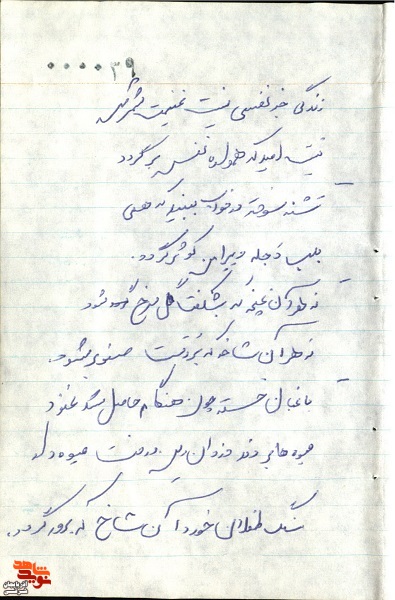 ۰۰۰۰۳۹
زندگی جز نفسی نیست غنیمت شمرش
نیست امید که همواره نفس برگردد
تشنه سوخته در خواب ببیند که همی
بلب دجله و پیرامن کوثر گردد.
نه هر آن غنچه که بشکفت گل سرخ شود
نه هر آن شاخه که بررست صنوبر بشود.
باغبان خسته چون هنگام حاصل شد غنود
میوه‌ها بردند دزدان زین درخت میوه دار
سنگ طفلان خورد آن شاخ که برور گردد.
شاهد
نوید